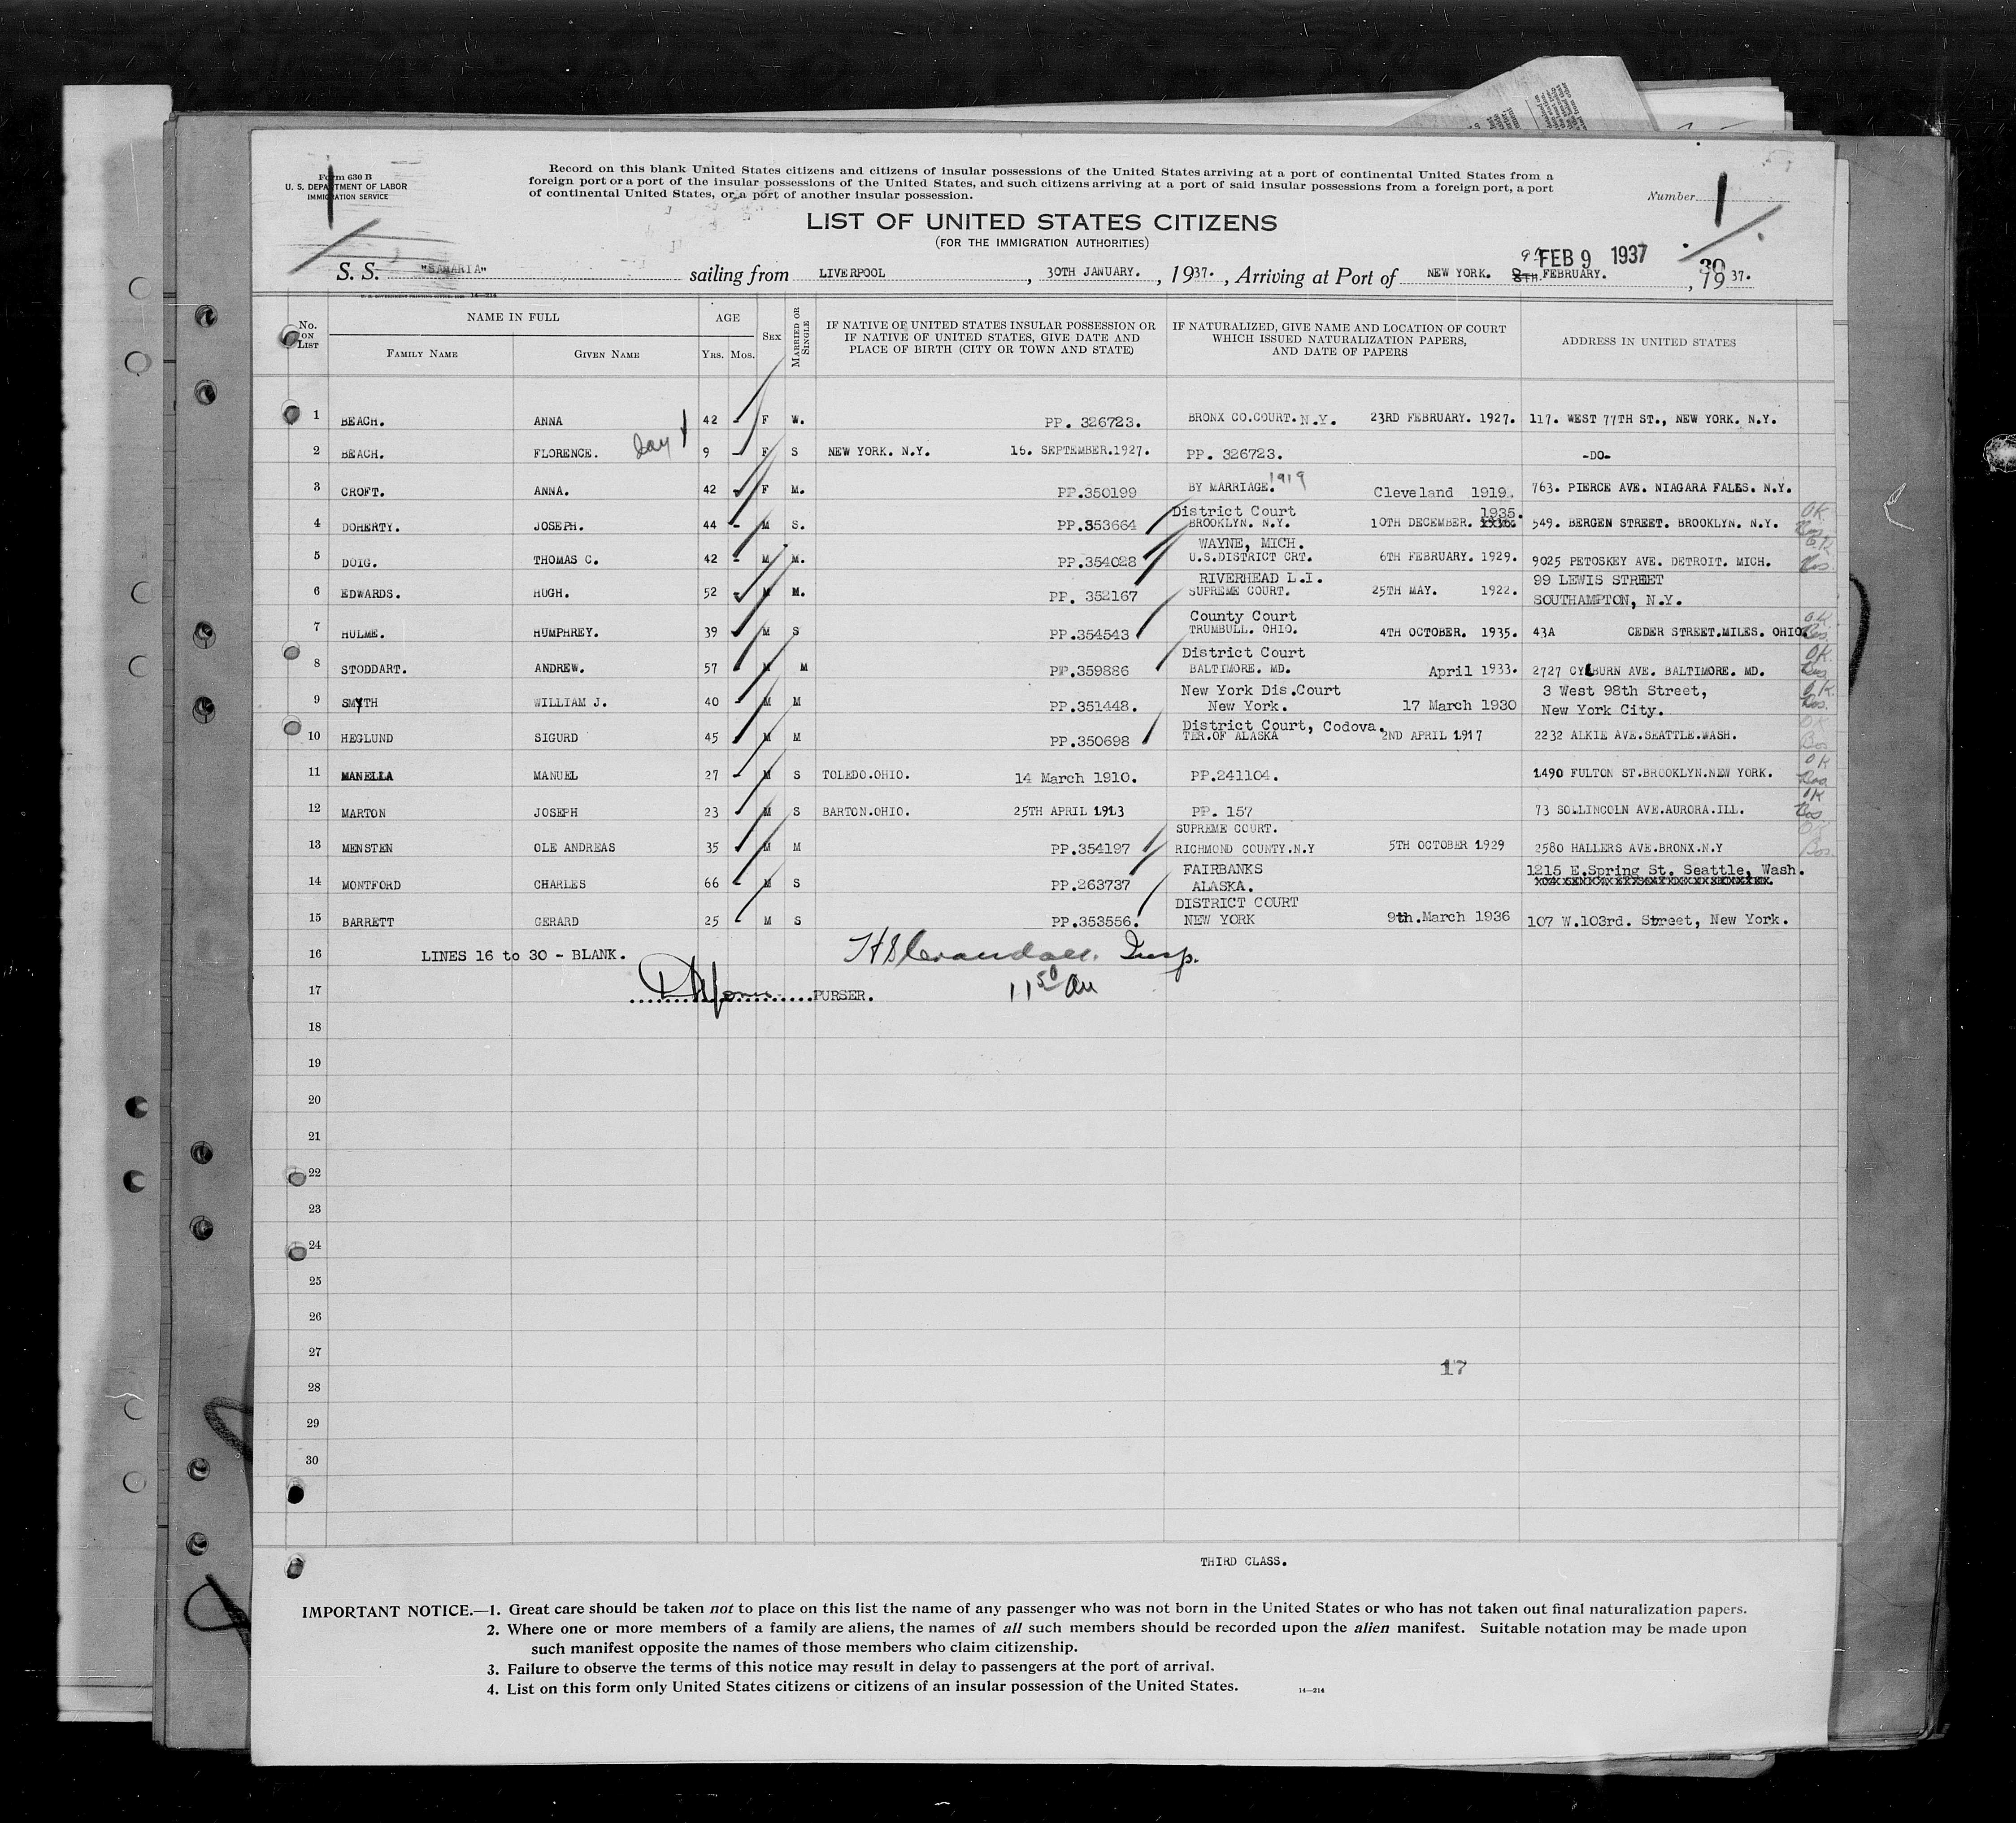 Form 630 B
U. S. DEPARTMENT OF LABOR
IMMIGRATION SERVICE
Record on this blank United States citizens and citizens of insular possessions of the United States arriving at a port of continental United States from a
foreign port or a port of the insular possessions of the United States, and such citizens arriving at a port of said insular possessions from a foreign port, a port
of continental United States, or a port of another insular possession.
Number 1
LIST OF UNITED STATES CITIZENS
(FOR THE IMMIGRATION AUTHORITIES)
FEB 9 1937
30
S. S. "SAMARIA" sailing from LIVERPOOL, 30TH JANUARY., 1937., Arriving at Port of NEW YORK. 8TH. FEBRUARY., 1937.
No. ON LIST NAME IN FULL FAMILY NAME GIVEN NAME AGE YRS. MOS. SEX MARRIED OR SINGLE IF NATIVE OF UNITED STATES INSULAR POSSESSION OR IF NATIVE OF UNITED STATES, GIVE DATE AND PLACE OF BIRTH (CITY OR TOWN AND STATE) IF NATURALIZED, GIVE NAME AND LOCATION OF COURT WHICH ISSUED NATURALIZATION PAPERS, AND DATE OF PAPERS ADDRESS IN UNITED STATES
1 BEACH. ANNA 42 - F W. PP. 326723. BRONX CO.COURT. N.Y. 23RD FEBRUARY. 1927. 117. WEST 77TH ST., NEW YORK. N.Y.
2 BEACH. FLORENCE. 9 - F S NEW YORK. N.Y. 16. SEPTEMBER.1927. PP. 326723. -DO-
3 CROFT. ANNA. 42 - F M. PP.350199 BY MARRIAGE. 1919 Cleveland 1919. 763. PIERCE AVE. NIAGARA FALLS. N.Y.
District Court 1935.
4 DOHERTY. JOSEPH. 44 - M S. PP.353664 BROOKLYN. N.Y. 10TH DECEMBER. 549. BERGEN STREET. BROOKLYN. N.Y.
WAYNE, MICH.
5 DOIG. THOMAS C. 42 - M M. PP.354028 U.S.DISTRICT CRT. 6TH FEBRUARY. 1929. 9025 PETOSKEY AVE. DETROIT. MICH.
RIVERHEAD L.I. 99 LEWIS STREET
6 EDWARDS. HUGH. 52 - M M. PP. 352167 SUPREME COURT. 25TH MAY. 1922. SOUTHAMPTON, N.Y.
County Court
7 HULME. HUMPHREY. 39 M S PP.354543 TRUMBULL. OHIO. 4TH OCTOBER. 1935. 43A CEDER STREET.MILES. OHIO.
District Court
8 STODDART. ANDREW. 57 M M PP.359886 BALTIMORE. MD. April 1933. 2727 CYLBURN AVE. BALTIMORE. MD.
New York Dis.Court 3 West 98th Street,
9 SMYTH WILLIAM J. 40 M M PP.351448. New York. 17 March 1930 New York City.
District Court, Codova.
10 HEGLUND SIGURD 45 M M PP.350698 TER.OF ALASKA 2ND APRIL 1917 2232 ALKIE AVE.SEATTLE.WASH.
11 MANELLA MANUEL 27 - M S TOLEDO.OHIO. 14 March 1910. PP.241104. 1490 FULTON ST.BROOKLYN.NEW YORK.
12 MARTON JOSEPH 23 M S BARTON.OHIO. 25TH APRIL 1913 PP. 157 73 SO.LINCOLN AVE.AURORA.ILL.
SUPREME COURT.
13 MENSTEN OLE ANDREAS 35 M M PP.354197 RICHMOND COUNTY.N.Y 5TH OCTOBER 1929 2580 HALLERS AVE.BRONX.N.Y
FAIRBANKS 1215 E.Spring St. Seattle, Wash.
14 MONTFORD CHARLES 66 - M S PP.263737 ALASKA.
DISTRICT COURT
15 BARRETT GERARD 25 M S PP.353556. NEW YORK 9th.March 1936 107 W.103rd. Street, New York.
16 LINES 16 to 30 - BLANK. Insp.
17 PURSER.
18
19
20
21
22
23
24
25
26
27
17
28
29
30
THIRD CLASS.
IMPORTANT NOTICE.—1. Great care should be taken not to place on this list the name of any passenger who was not born in the United States or who has not taken out final naturalization papers.
2. Where one or more members of a family are aliens, the names of all such members should be recorded upon the alien manifest. Suitable notation may be made upon
such manifest opposite the names of those members who claim citizenship.
3. Failure to observe the terms of this notice may result in delay to passengers at the port of arrival.
4. List on this form only United States citizens or citizens of an insular possession of the United States.
14—214